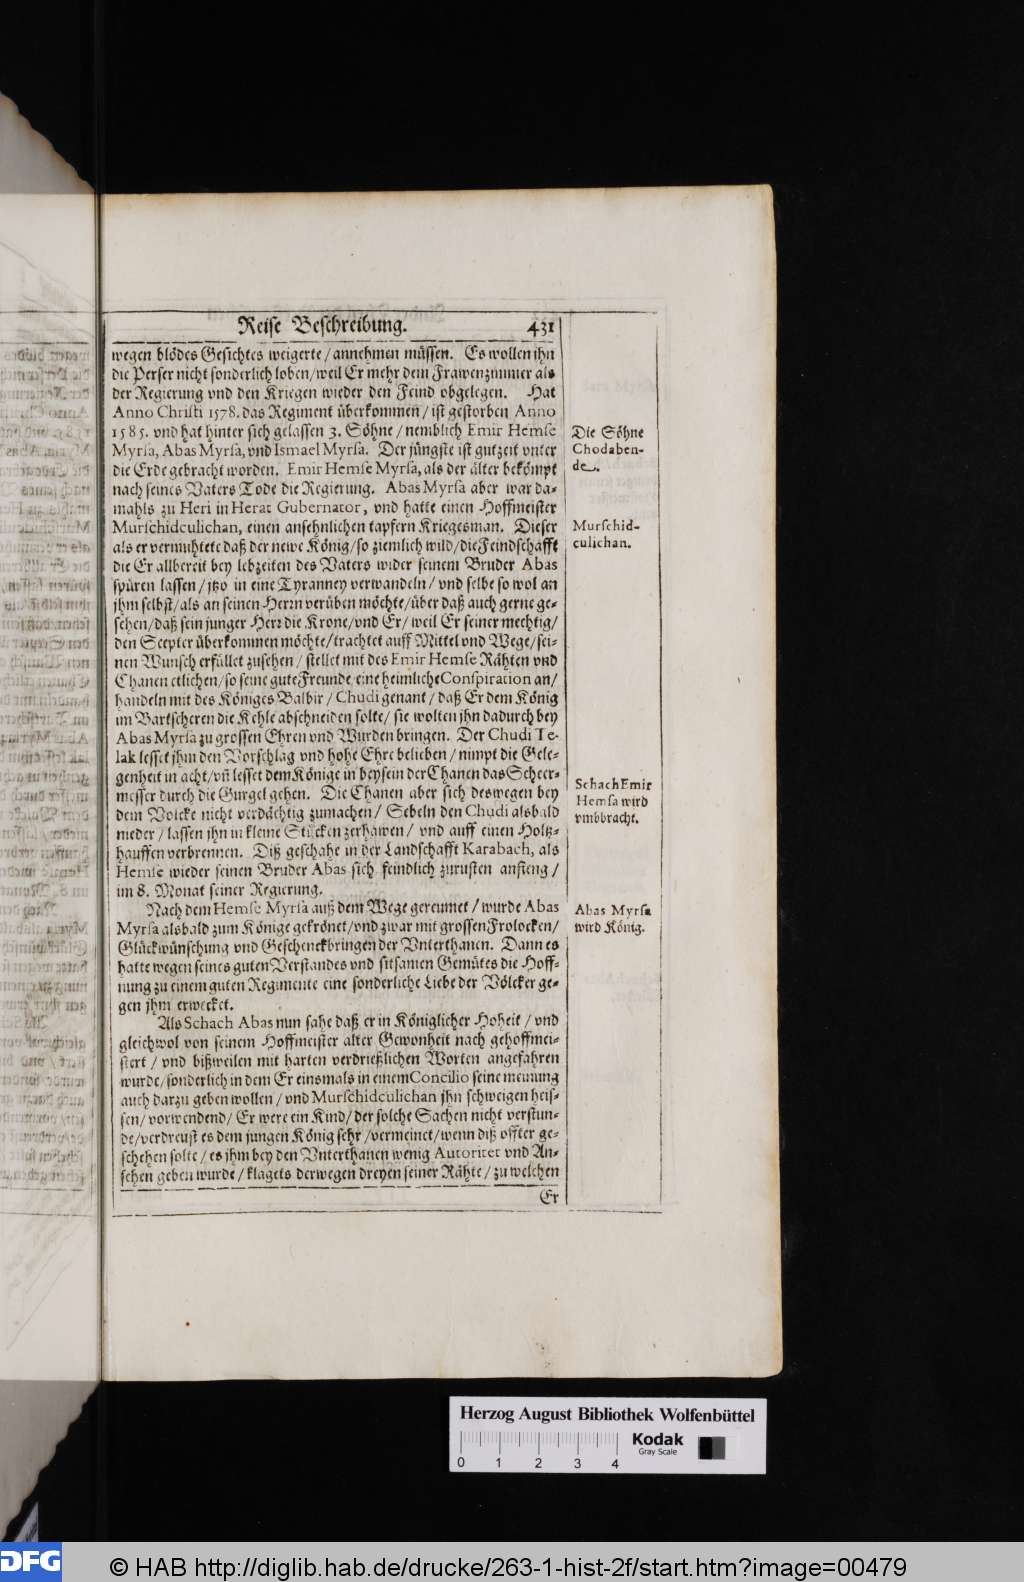 Reise Beschreibung. 431
wegen blödes Gesichtes weigerte / annehmen müssen. Es wollen ihn
die Perser nicht sonderlich loben / weil Er mehr dem Frawenzimmer als
der Regierung vnd den Kriegen wieder den Feind obgelegen. Hat
Anno Christi 1578. das Regiment überkommen / ist gestorben Anno
1585. vnd hat hinter sich gelassen 3. Söhne / nemblich Emir Hemse
Myrsa, Abas Myrsa, vnd Ismael Myrsa. Der jüngste ist gutzeit vnter
die Erde gebracht worden. Emir Hemse Myrsa, als der älter bekömpt
nach seines Vaters Tode die Regierung. Abas Myrsa aber war da-
mahls zu Heri in Herat Gubernator, vnd hatte einen Hoffmeister
Murschidculichan, einen ansehnlichen tapfern Kriegesman. Dieser
als er vermuhtete daß der newe König / so ziemlich wild / die Feindschafft
die Er allbereit bey lebzeiten des Vaters wider seinem Bruder Abas
spüren lassen / jtzo in eine Tyranney verwandeln / vnd selbe so wol an
jhm selbst / als an seinen Herrn verüben möchte / über daß auch gerne ge-
sehen / daß sein junger Herr die Krone / vnd Er / weil Er seiner mechtig /
den Scepter überkommen möchte / trachtet auff Mittel vnd Wege / sei-
nen Wunsch erfüllet zusehen / stellet mit des Emir Hemse Rähten vnd
Chanen etlichen / so seine gute Freunde eine heimliche Conspiration an /
handeln mit des Königes Balbir / Chudi genant / daß Er dem König
im Bartscheren die Kehle abschneiden solte / sie wolten jhn dadurch bey
Abas Myrsa zu grossen Ehren vnd Wurden bringen. Der Chudi Te-
lak lesset jhm den Vorschlag vnd hohe Ehre belieben / nimpt die Gele-
genheit in acht / vñ lesset dem Könige in beysein der Chanen das Scheer-
messer durch die Gurgel gehen. Die Chanen aber sich deswegen bey
dem Volcke nicht verdächtig zumachen / Sebeln den Chudi alsbald
nieder / lassen jhn in kleine Stücken zerhawen / vnd auff einen Holtz-
hauffen verbrennen. Diß geschahe in der Landschafft Karabach, als
Hemse wieder seinen Bruder Abas sich feindlich zurusten anfieng /
im 8. Monat seiner Regierung.
Nach dem Hemse Myrsa auß dem Wege gereumet / wurde Abas
Myrsa alsbald zum Könige gekrönet / vnd zwar mit grossen Frolocken /
Glückwünschung vnd Geschenckbringen der Vnterthanen. Dann es
hatte wegen seines guten Verstandes vnd sitsamen Gemütes die Hoff-
nung zu einem guten Regimente eine sonderliche Liebe der Völcker ge-
gen jhm erwecket.
Als Schach Abas nun sahe daß er in Königlicher Hoheit / vnd
gleichwol von seinem Hoffmeister alter Gewonheit nach gehoffmei-
stert / vnd bißweilen mit harten verdrießlichen Worten angefahren
wurde / sonderlich in dem Er einsmals in einem Concilio seine meinung
auch darzu geben wollen / vnd Murschidculichan jhn schweigen heis-
sen / vorwendend / Er were ein Kind / der solche Sachen nicht verstun-
de / verdreust es dem jungen König sehr / vermeinet / wenn diß offter ge-
schehen solte / es jhm bey den Vnterthanen wenig Autoritet vnd An-
sehen geben wurde / klagets derwegen dreyen seiner Rähte / zu welchen
Er
Die Söhne
Chodaben-
de.
Murschid-
culichan.
Schach Emir
Hemsa wird
vmbbracht.
Abas Myrsa
wird König.
Herzog August Bibliothek Wolfenbüttel
Kodak
Gray Scale
0 1 2 3 4
DFG © HAB http://diglib.hab.de/drucke/263-1-hist-2f/start.htm?image=00479